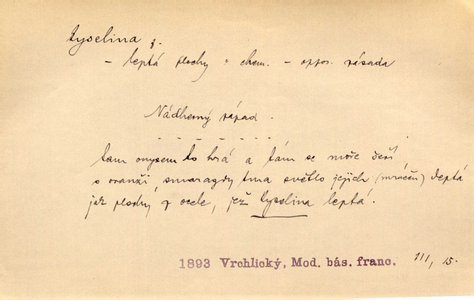 kyselina f.
– leptá plochy : chem. – oppos. zásada
Nádherný západ.
– – – – – – –
tam onyxem to hrá a tam se moře čeří,
s oranží, smaragdy tma světlo jejich (mraků) deptá
jak plochy z ocele, jež kyselina leptá.
1893 Vrchlický, Mod. bás. franc. III, 15.